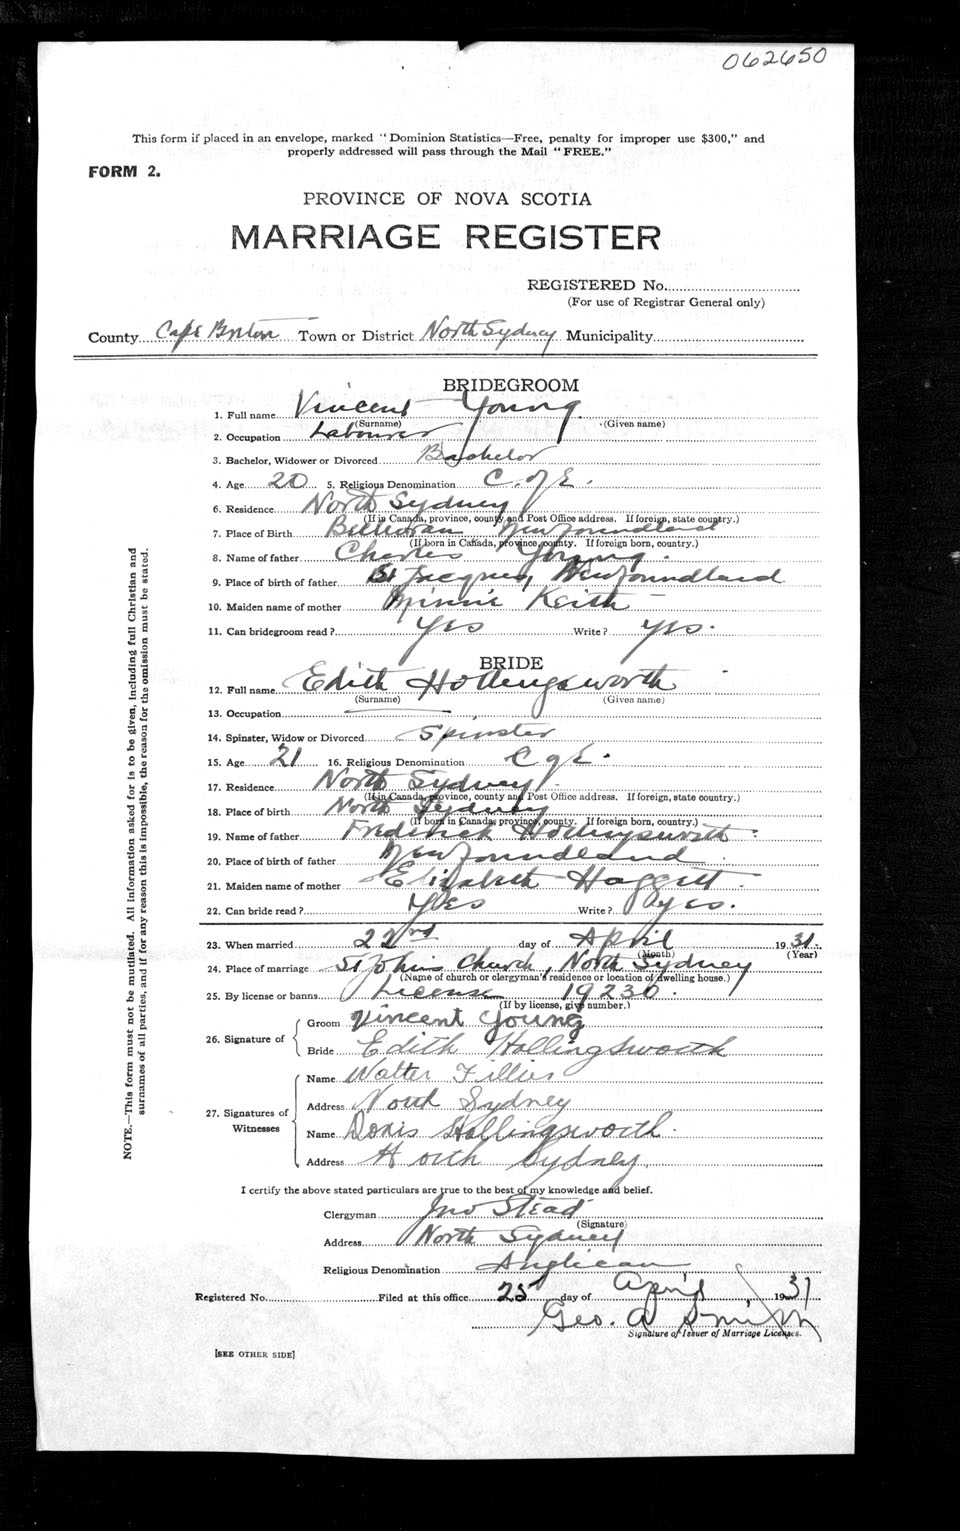 062650
This form if placed in an envelope, marked "Dominion Statistics—Free, penalty for improper use $300," and
properly addressed will pass through the Mail "FREE."
FORM 2.
PROVINCE OF NOVA SCOTIA
MARRIAGE REGISTER
REGISTERED No.
(For use of Registrar General only)
County Cape Breton Town or District North Sydney Municipality
BRIDEGROOM
1. Full name Vincent Young
(Surname) (Given name)
2. Occupation Labourer
3. Bachelor, Widower or Divorced Bachelor
4. Age 20 5. Religious Denomination C. of E.
6. Residence North Sydney
(If in Canada, province, county and Post Office address. If foreign, state country.)
7. Place of Birth Belleoram Newfoundland
(If born in Canada, province, county. If foreign born, country.)
8. Name of father Charles Young.
9. Place of birth of father St Jacques, Newfoundland
10. Maiden name of mother Minnie Keith
11. Can bridegroom read? Yes Write? yes.
BRIDE
12. Full name Edith Hollingsworth
(Surname) (Given name)
13. Occupation
14. Spinster, Widow or Divorced Spinster
15. Age 21 16. Religious Denomination C of E.
17. Residence North Sydney
(If in Canada, province, county and Post Office address. If foreign, state country.)
18. Place of birth North Sydney
(If born in Canada, province, county. If foreign born, country.)
19. Name of father Frederick Hollingsworth
20. Place of birth of father Newfoundland
21. Maiden name of mother Elizabeth Haggett
22. Can bride read? Yes Write? yes.
23. When married 22nd day of April 1931.
(Month) (Year)
24. Place of marriage St John's Church, North Sydney
(Name of church or clergyman's residence or location of dwelling house.)
25. By license or banns License 19230.
(If by license, give number.)
26. Signature of
Groom Vincent Young
Bride Edith Hollingsworth
27. Signatures of Witnesses
Name Walter Fillier
Address North Sydney
Name Doris Hollingsworth.
Address North Sydney
I certify the above stated particulars are true to the best of my knowledge and belief.
Clergyman Jno Stead
(Signature)
Address North Sydney
Religious Denomination Anglican
Registered No. Filed at this office 25 day of April 1931
Geo. A Smith
Signature of Issuer of Marriage Licenses.
[SEE OTHER SIDE]
NOTE.—This form must not be mutilated. All information asked for is to be given, including full Christian and
surnames of all parties, and if for any reason this is impossible, the reason for the omission must be stated.